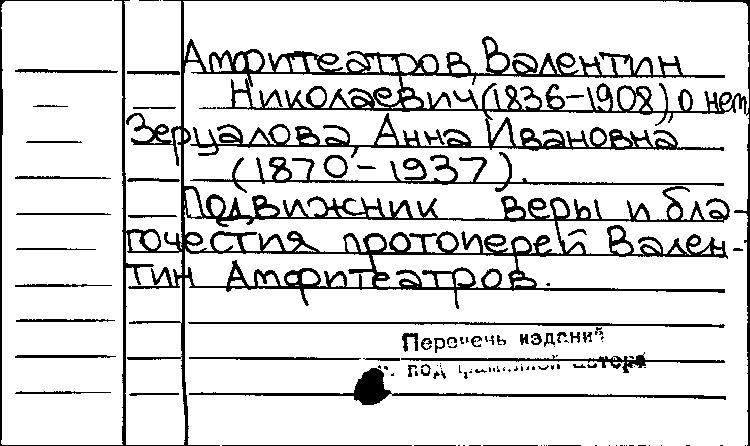 Амфитеатров, Валентин
Николаевич (1836-1908), о нем
Зерцалова, Анна Ивановна
(1870-1937).
Подвижник веры и бла-
гочестия протоиерей Вален-
тин Амфитеатров.
Перечень изданий
под фамилией автора